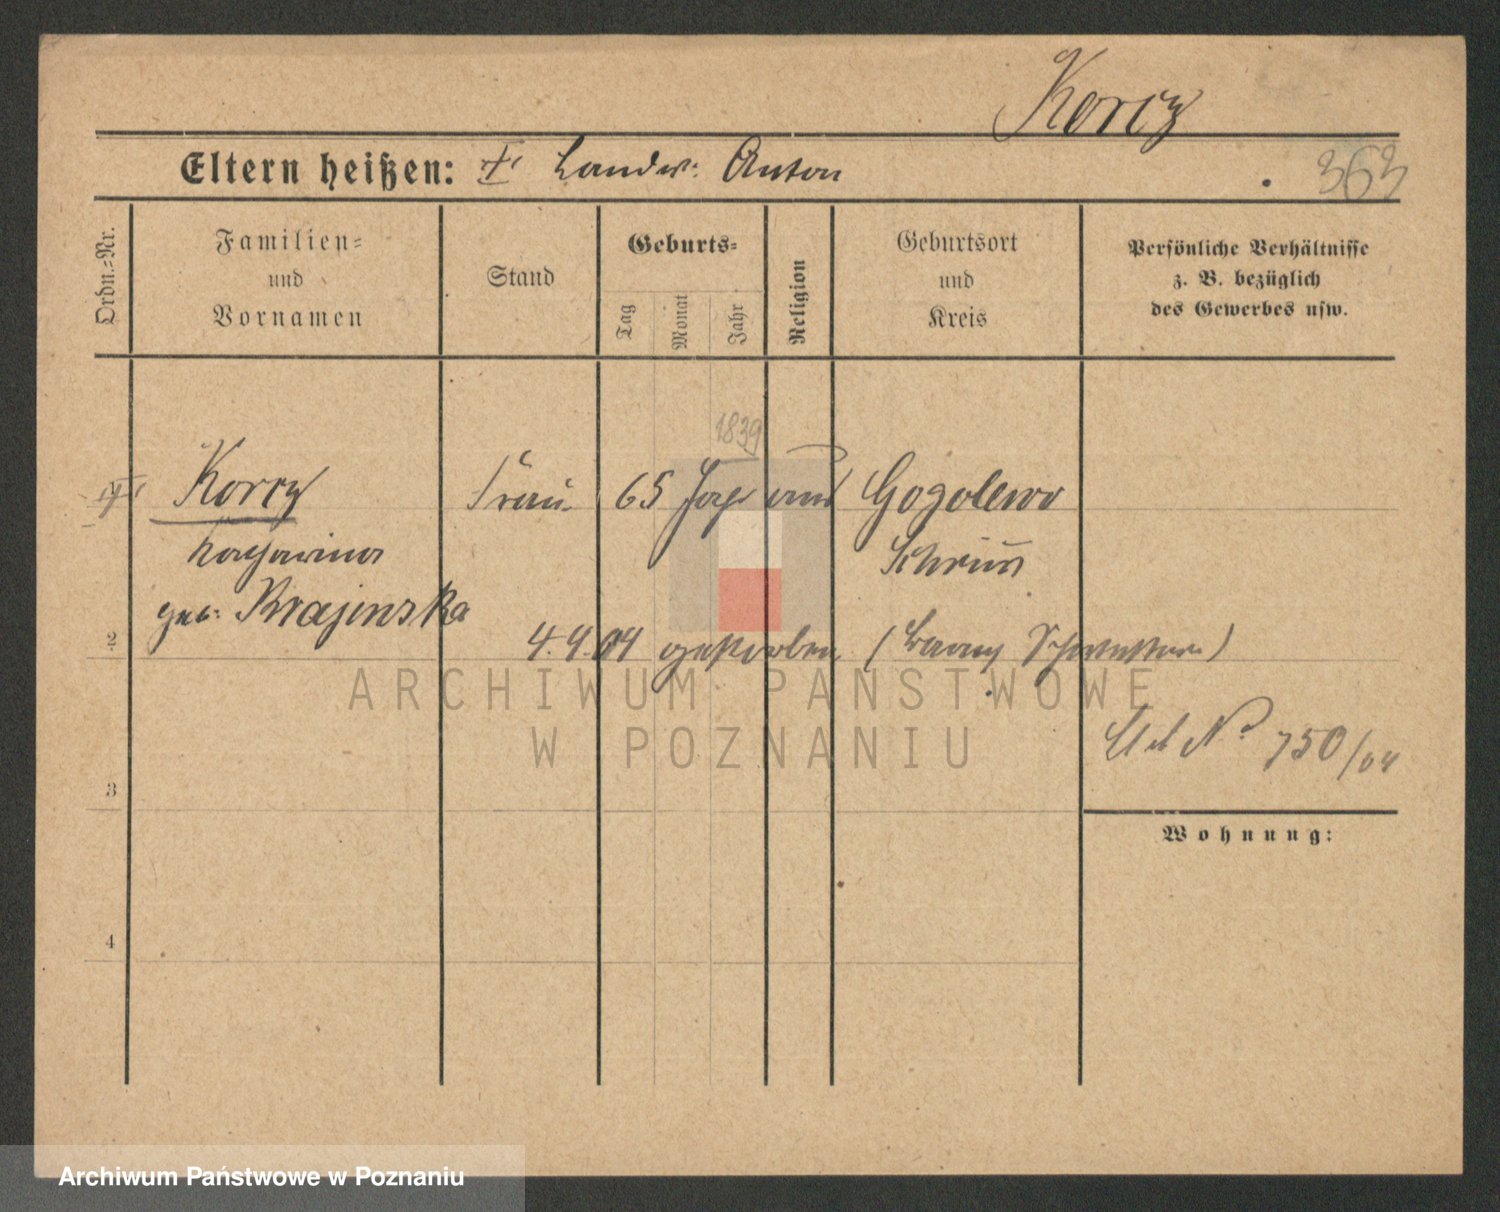 Korcz
Eltern heißen: Landw: Anton
363
Ordn.-Nr.
Familien-
und
Vornamen
Stand
Geburts-
Tag
Monat
Jahr
Religion
Geburtsort
und
Kreis
Persönliche Verhältnisse
z. B. bezüglich
des Gewerbes usw.
1839
Korcz Frau 65 Jahr Gogolewo
Katharina Schrimm
geb: Krajenska
2
4.4.04 gestorben
ARCHIWUM PAŃSTWOWE
W POZNANIU
No 750/04
3
Wohnung:
4
Archiwum Państwowe w Poznaniu